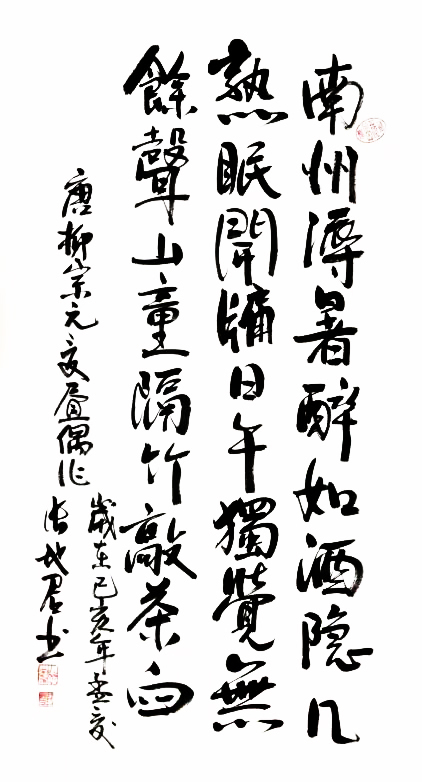 南州溽暑醉如酒隐几
熟眠開牖日午獨覺無
餘聲山童隔竹敲茶臼
唐柳宗元夏晝偶作
歲在己亥年孟夏
张地君书